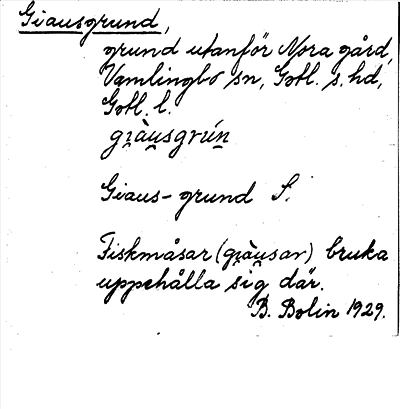 Giausgrund,
grund utanför Nora gård,
Vamlingbo sn, Gotl. s. hd,
Gotl. l.
gi̯àu̯sgrún
Giaus-grund S.
Fiskmåsar (gi̯àu̯sar) bruka
uppehålla sig där.
B. Bolin 1929.